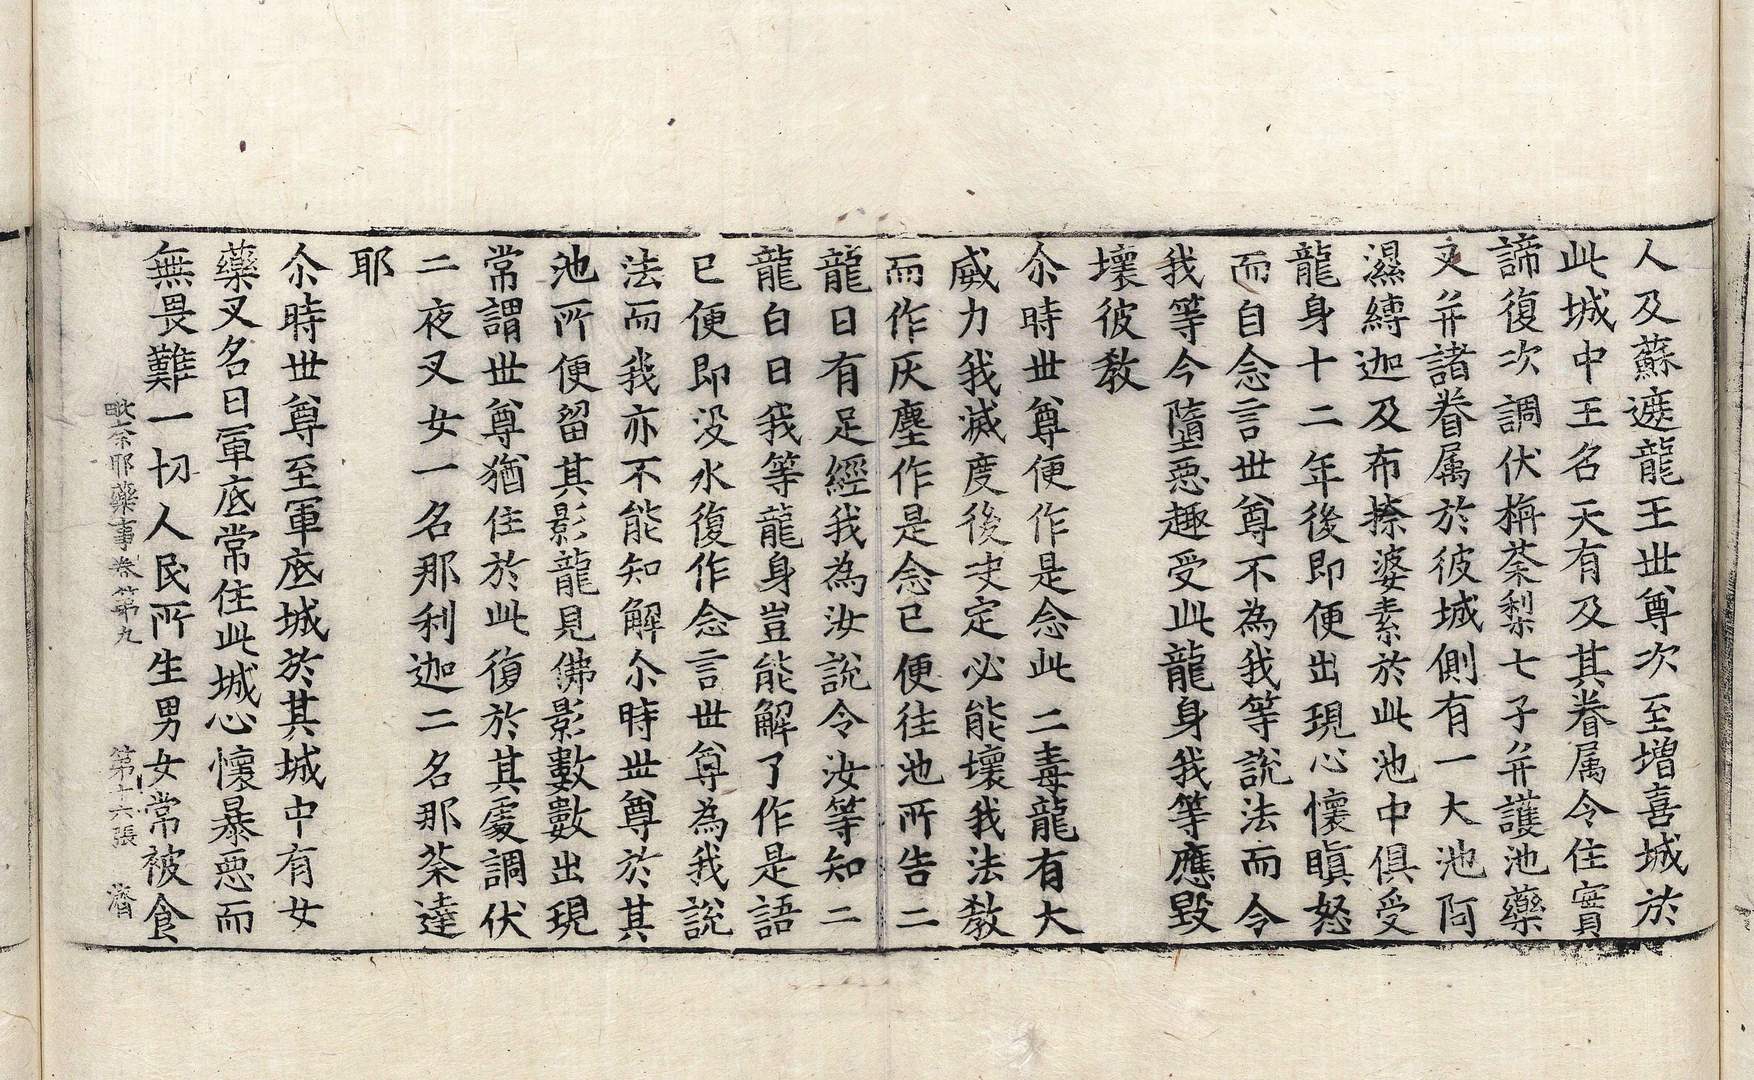 人及蘇遮龍王世尊次至增喜城於
此城中王名天有及其眷属令住實
諦復次調伏栴荼梨七子并護池藥
叉并諸眷属於彼城側有一大池阿
濕縛迦及布捺婆素於此池中俱受
龍身十二年後即便出現心懷瞋怒
而自念言世尊不為我等說法而令
我等今墮惡趣受此龍身我等應毀
壞彼教
尒時世尊便作是念此二毒龍有大
威力我滅度後史定必能壞我法教
而作灰塵作是念已便往池所告二
龍曰有足經我為汝說令汝等知二
龍白曰我等龍身豈能解了作是語
已便即没水復作念言世尊為我說
法而我亦不能知解尒時世尊於其
池所便留其影龍見佛影數數出現
常謂世尊猶住於此復於其處調伏
二夜叉女一名那利迦二名那荼達
耶
尒時世尊至軍底城於其城中有女
藥叉名曰軍底常住此城心懷暴惡而
無畏難一切人民所生男女常被食
毗奈耶藥事卷第九 第十六張 濟